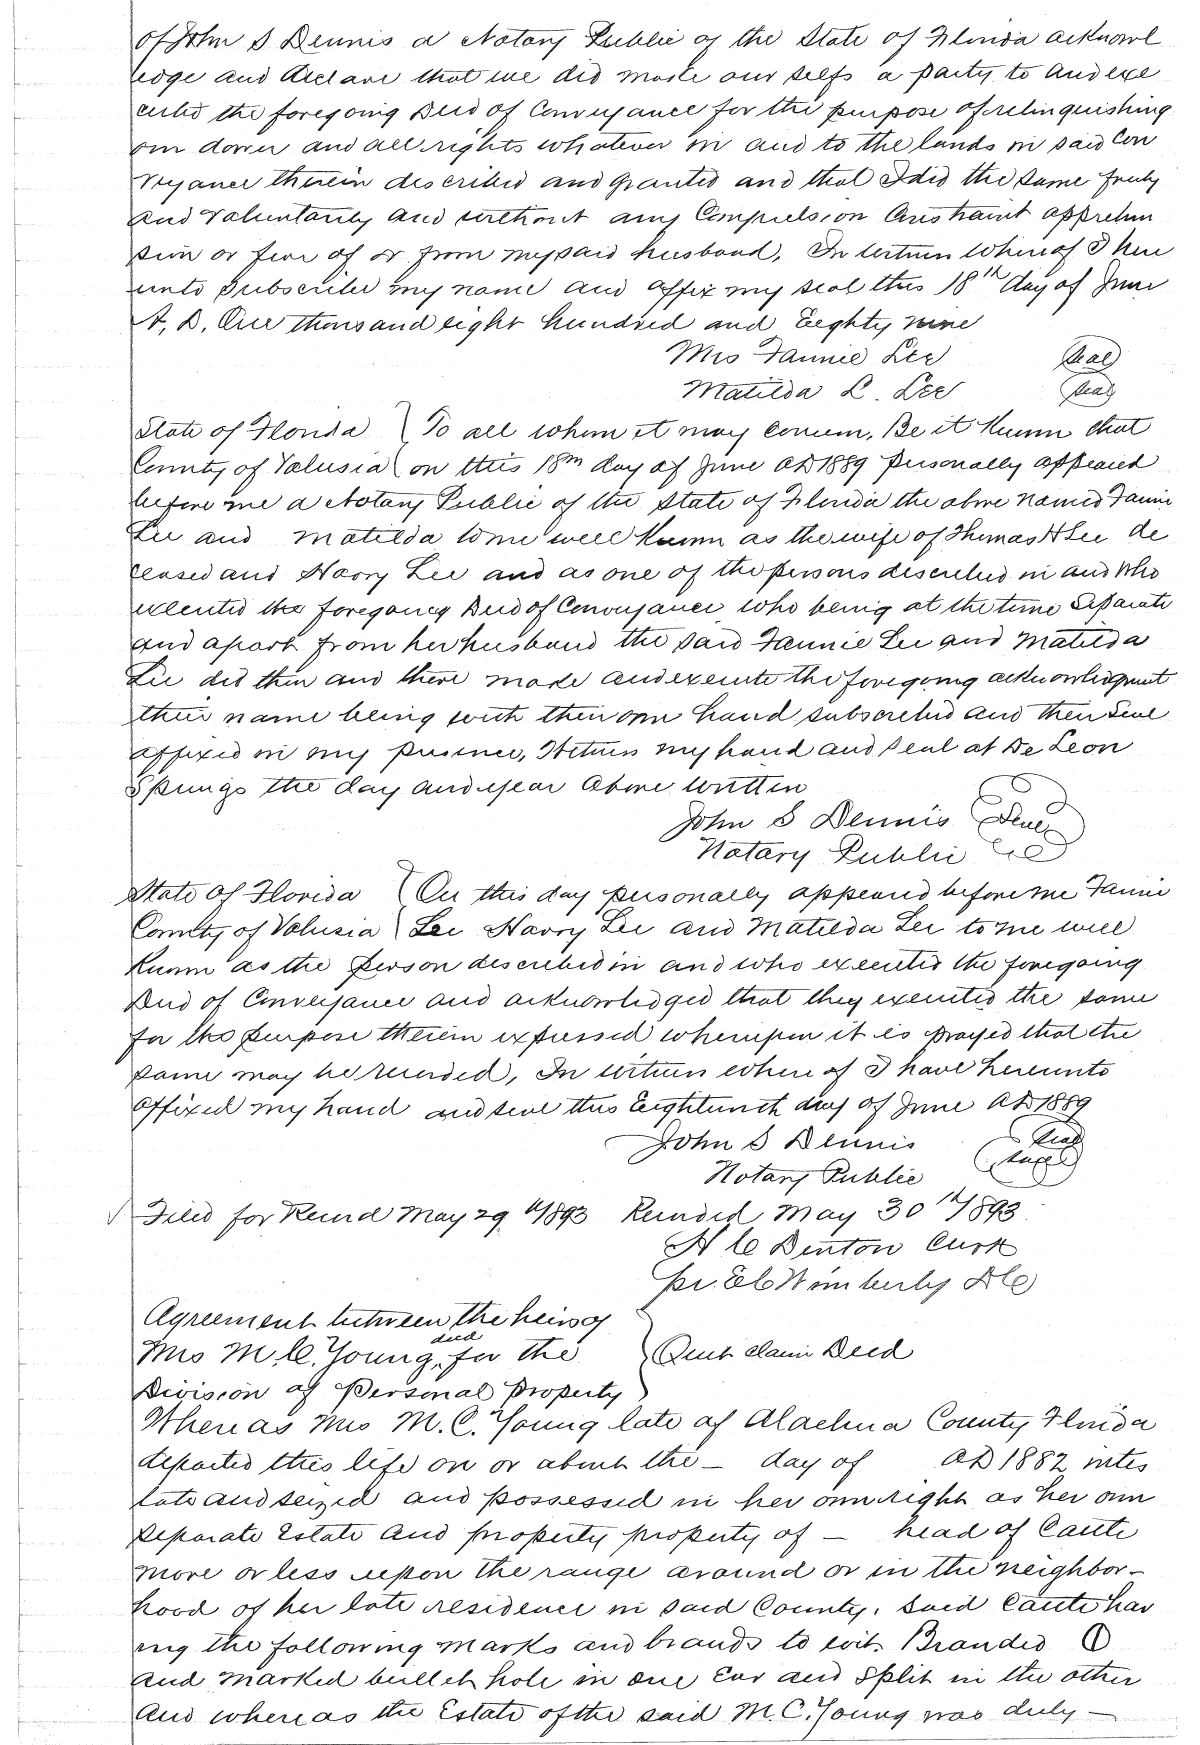 of John S Dennis a Notary Public of the State of Florida acknowl
edge and declare that we did make our selfs a party to and exe
cuted the foregoing Deed of Conveyance for the purpose of relinquishing
our dower and all rights whatever in and to the lands in said Con
veyance therein described and granted and that I did the same freely
and voluntarily and without any Compulsion Constraint apprehen
sion or fear of or from my said husband. In witness Whereof I here
unto subscribe my name and affix my seal this 18th day of June
A, D, One thousand eight hundred and Eighty nine
Mrs Fannie Lee (Seal)
Matilda L. Lee (Seal)
State of Florida } To all whom it may concern, Be it Known that
County of Volusia } on this 18th day of June AD 1889 personally appeared
before me a Notary Public of the State of Florida the above named Fannie
Lee and Matilda to me well Known as the wife of Thomas H Lee de
ceased and Harry Lee and as one of the persons described in and Who
executed the foregoing Deed of Conveyance who being at the time Separate
and apart from her husband the said Fannie Lee and Matilda
Lee did then and there made and execute the foregoing acknowledgment
their name being with their own hand subscribed and their Seal
affixed in my presence, Witness my hand and seal at De Leon
Springs the day and year above written
John S Dennis (Seal)
Notary Public
State of Florida } On this day personally appeared before me Fannie
County of Volusia } Lee Harry Lee and Matilda Lee to me well
Known as the person described in and who executed the foregoing
Deed of Conveyance and acknowledged that they executed the same
for the purpose therein expressed whereupon it is prayed that the
same may be recorded, In witness where of I have hereunto
affixed my hand and seal this Eighteenth day of June AD 1889
John S Dennis (Seal)
Notary Public
✓ Filed for Record May 29th/1893 Recorded May 30th/1893
H C Denton Clerk
pr. E C Wimberly D C
Agreement between the heirs of
Mrs M. C. Young, decd for the } Quit claim Deed
Division of Personal Property }
Whereas Mrs M. C. Young late of Alachua County Florida
departed this life on or about the – day of AD 1882 intes
tate and seized and possessed in her own right as her own
separate Estate and property property of – head of Cattle
more or less upon the range around or in the neighbor-
hood of her late residence in said County, said Cattle hav
ing the following marks and brands to wit. Branded Ⓘ
and marked bullet hole in one ear and split in the other
And whereas the Estate of the said M. C. Young was duly –